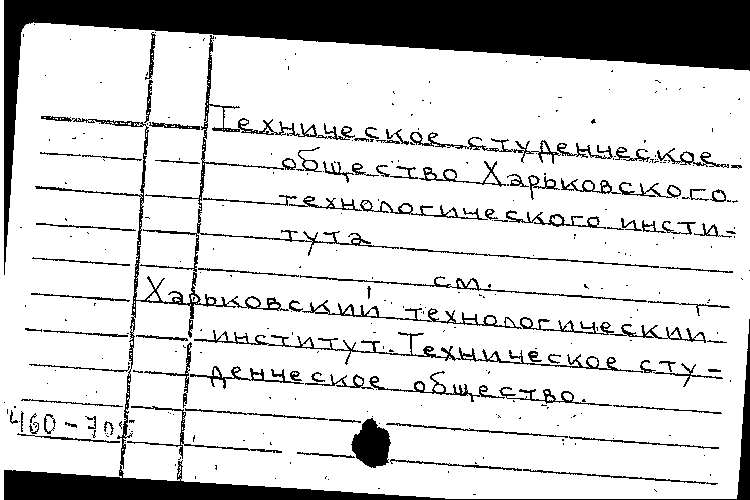 Техническое студенческое
общество Харьковского
технологического инсти-
тута
см.
Харьковский технологический
институт. Техническое сту-
денческое общество.
460-70